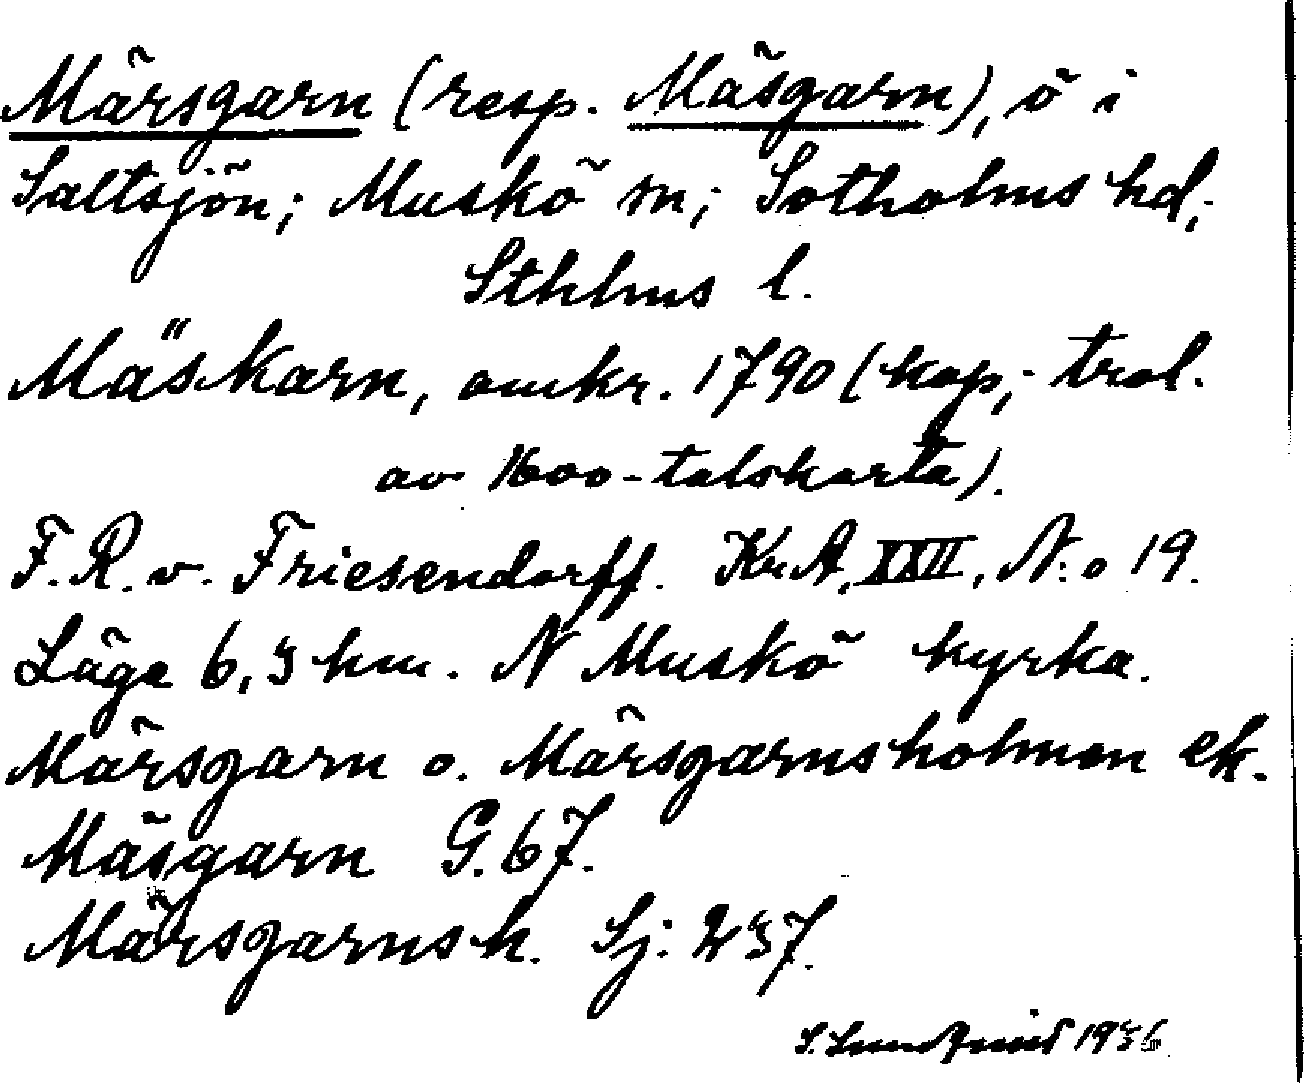 Märsgarn (resp. Mäsgarn), ö i
Saltsjön; Muskö sn; Sotholms hd;
Sthlms l.
Mäskarn, omkr. 1790 (kop; trol.
av 1600-talskarta).
F.R. v. Friesendorff. Kr.A. XXII, N:o 19.
Läge 6,3 km. N Muskö kyrka.
Märsgarn o. Märsgarnsholmen ek.
Mäsgarn G. 67.
Märsgarnsh. Sj: 237.
S. Lundqvist 1936